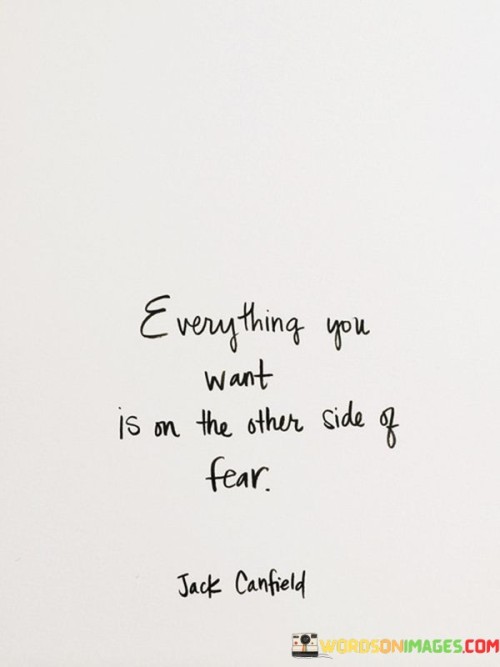 Everything you
want
is on the other side of
fear.
Jack Canfield
WORDSONIMAGES.COM